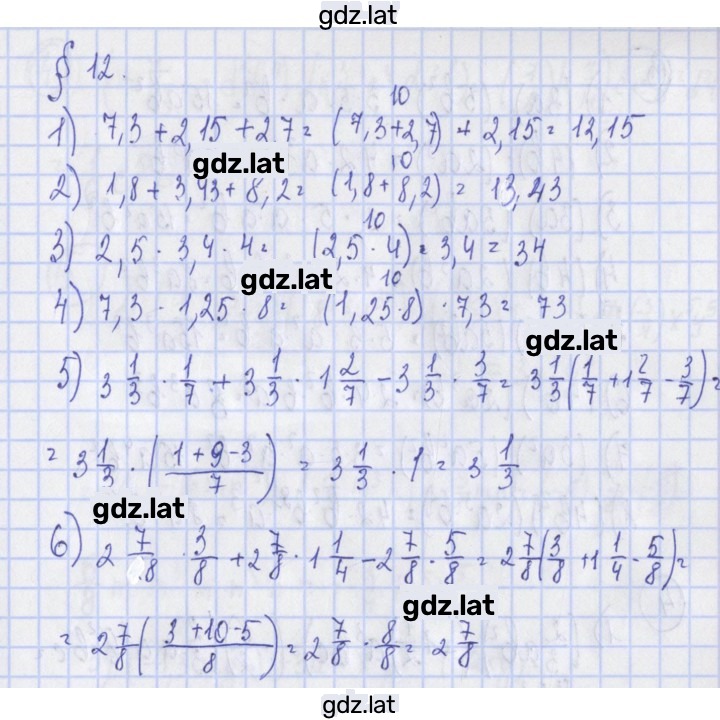 gdz.lat
§ 12.
10
1) 7,3 + 2,15 + 2.7 = (7,3+2,7) + 2,15 = 12,15
gdz.lat
10
2) 1,8 + 3,43 + 8,2 = (1,8+8,2) = 13,43
10
3) 2,5 · 3,4 · 4 = (2,5 · 4) = 3,4 = 34
gdz.lat
10
4) 7,3 · 1,25 · 8 = (1,25·8) · 7,3 = 73
gdz.lat
5) 3 1/3 · 1/7 + 3 1/3 · 1 2/7 − 3 1/3 · 3/7 = 3 1/3 (1/7 + 1 2/7 − 3/7) =
= 3 1/3 · (1+9−3/7) = 3 1/3 · 1 = 3 1/3
gdz.lat
6) 2 7/8 · 3/8 + 2 7/8 · 1 1/4 − 2 7/8 · 5/8 = 2 7/8 (3/8 + 1 1/4 − 5/8) =
gdz.lat
= 2 7/8 (3+10−5/8) = 2 7/8 · 8/8 = 2 7/8
gdz.lat